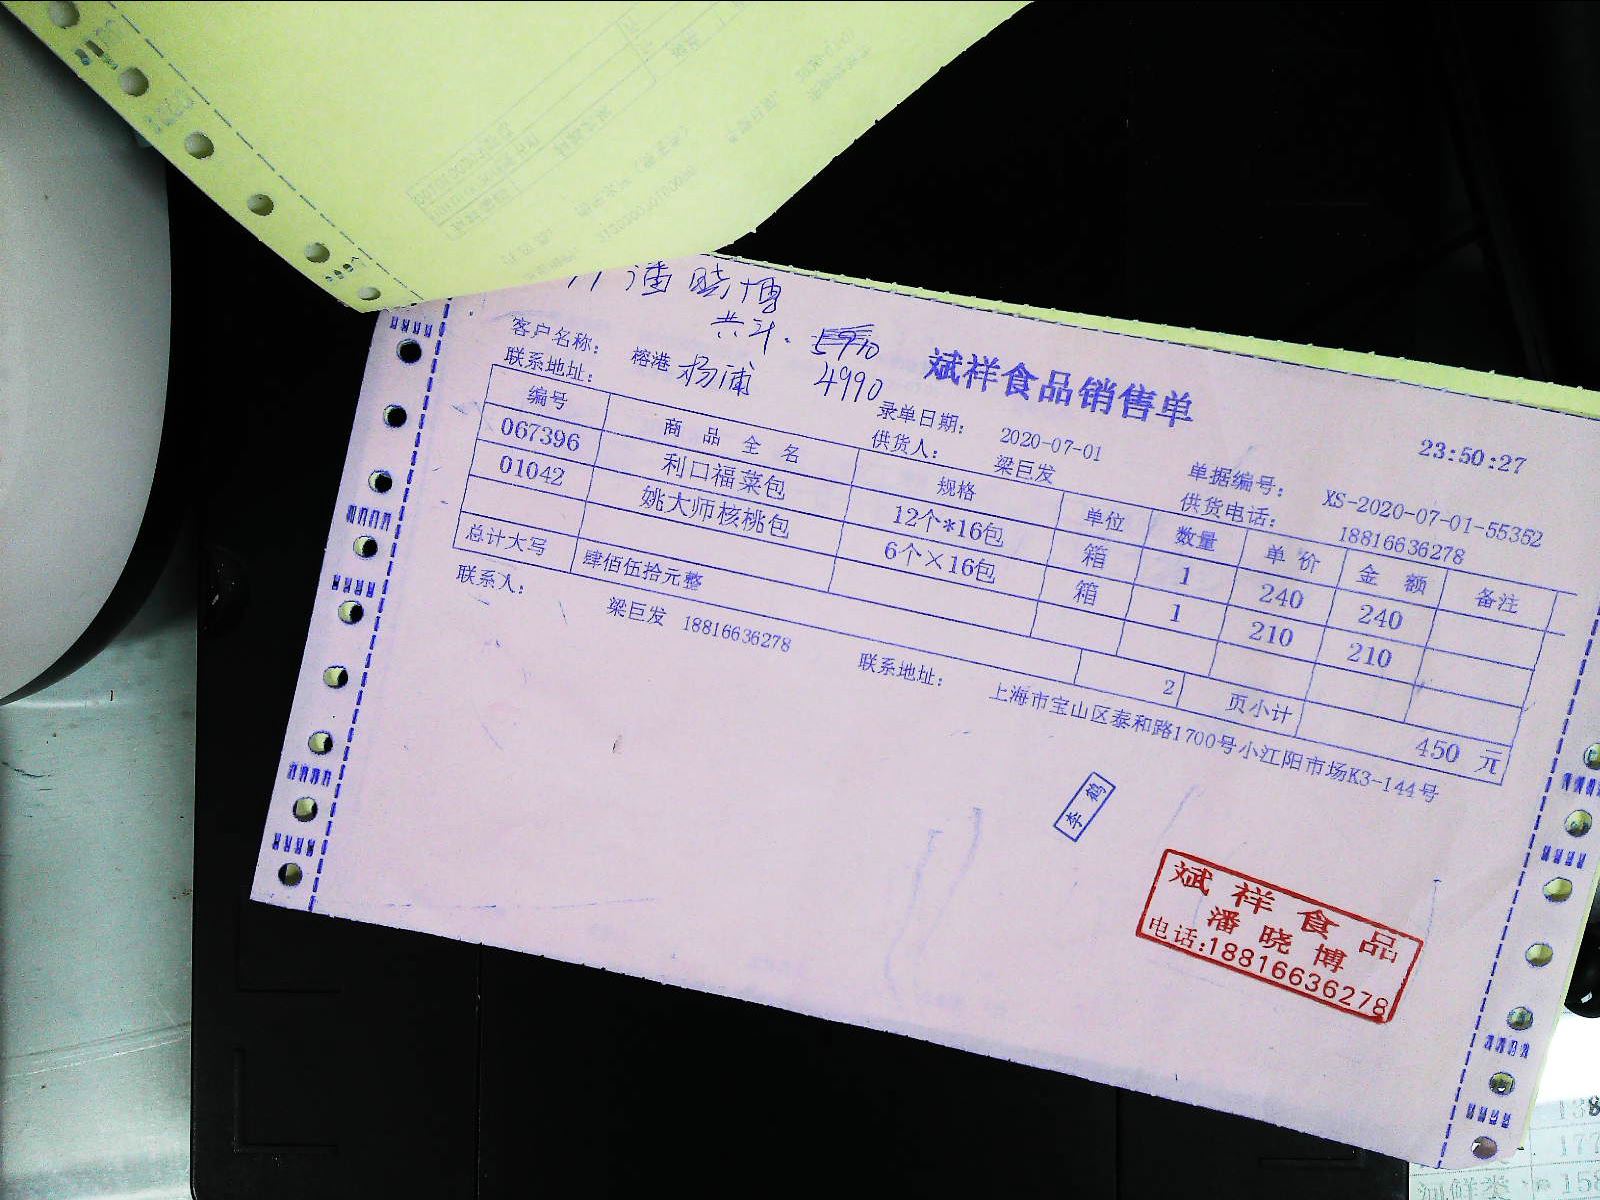 潘晓博
共计. 5990
4990
斌祥食品销售单
23:50:27
客户名称: 榕港 杨浦 录单日期: 2020-07-01 单据编号: XS-2020-07-01-55352
联系地址: 供货人: 梁巨发 供货电话: 18816636278
编号 商品全名 规格 单位 数量 单价 金额 备注
067396 利口福菜包 12个*16包 箱 1 240 240
01042 姚大师核桃包 6个×16包 箱 1 210 210
总计大写 肆佰伍拾元整 2 页小计 450 元
联系人: 梁巨发 18816636278 联系地址: 上海市宝山区泰和路1700号小江阳市场K3-144号
李鹤
斌祥食品
潘晓博
电话:18816636278
138
177
158